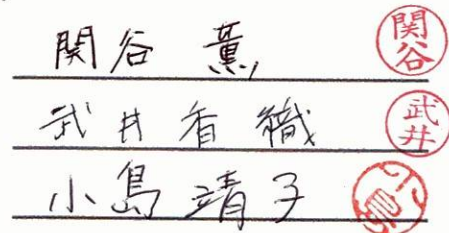 関谷 薫 関谷
武井香織 武井
小島靖子 小島